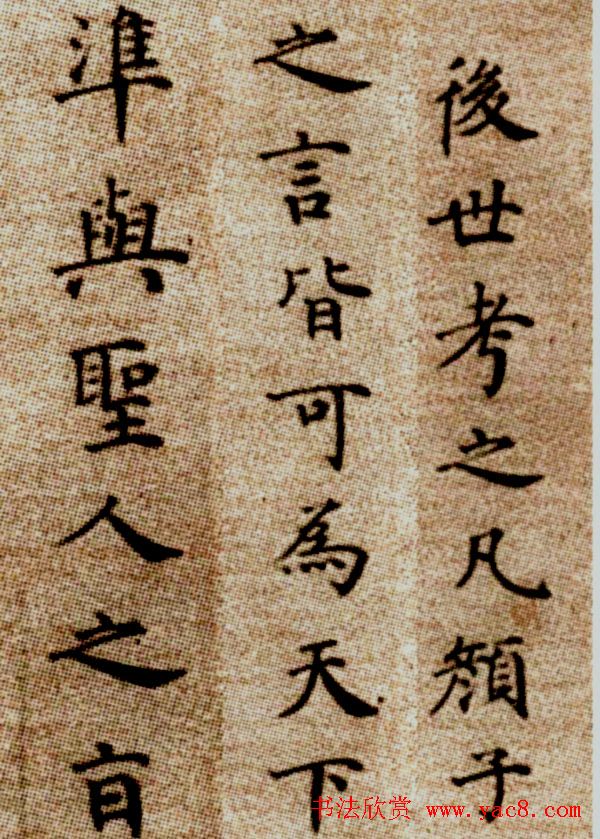 後世考之凡顔子
之言皆可為天下
準與聖人之
书法欣赏 www.yac8.com